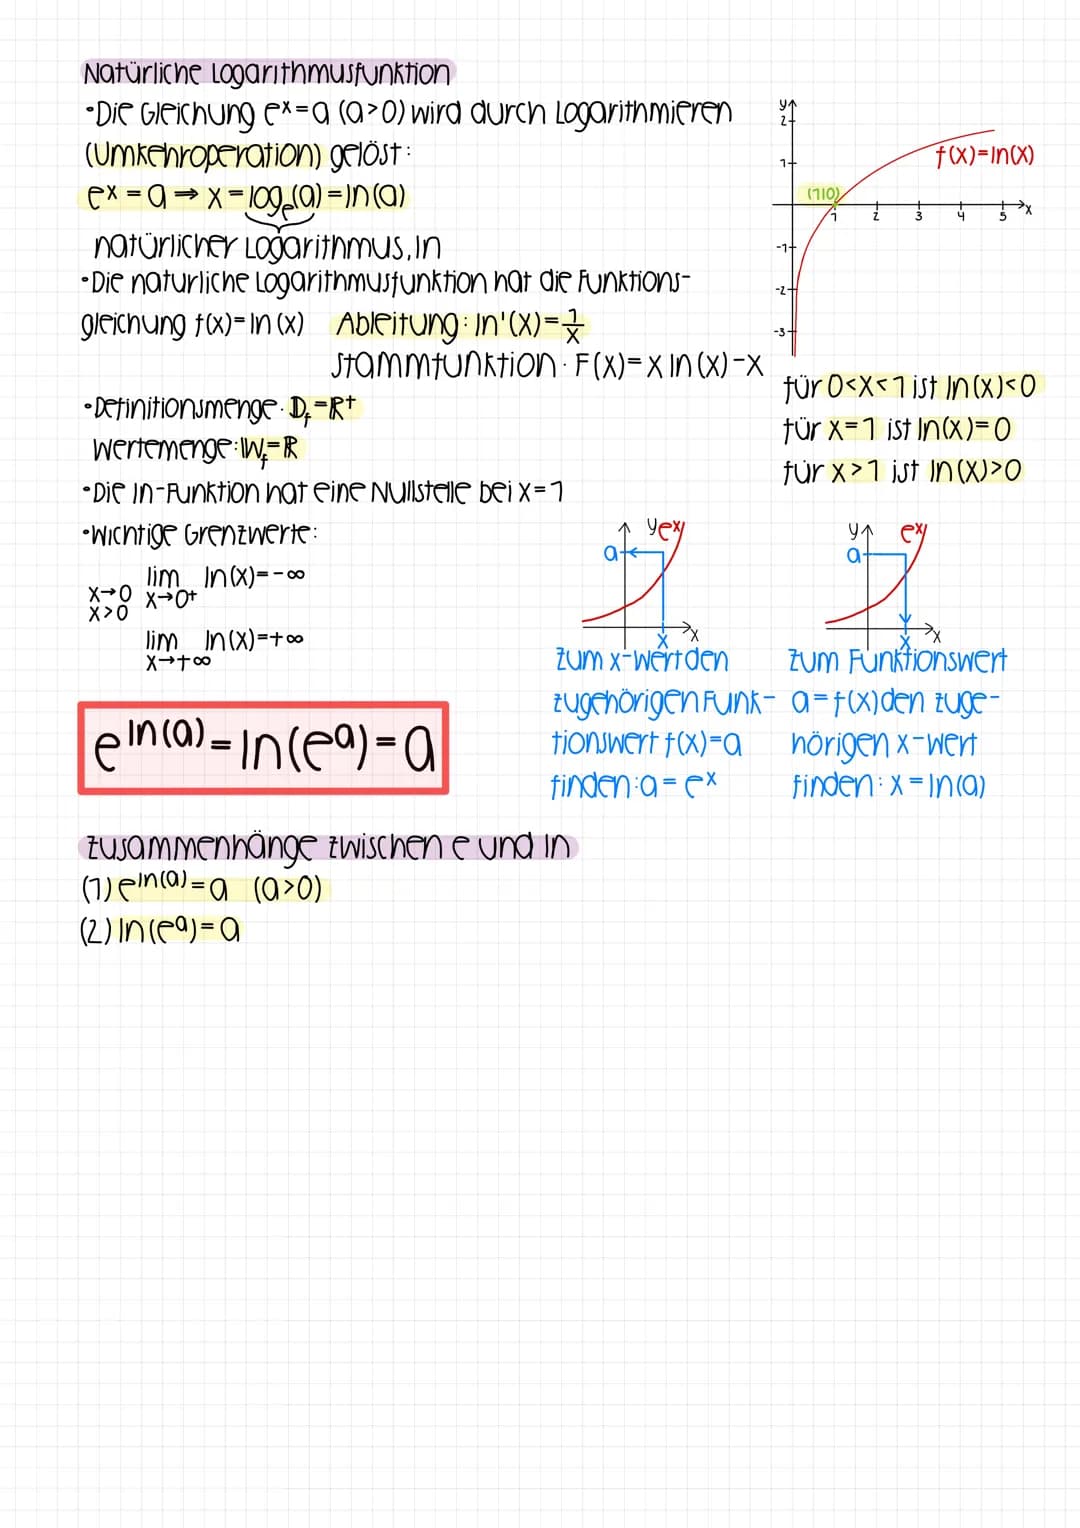 Natürliche Logarithmusfunktion
•Die Gleichung eˣ=a (a>0) wird durch Logarithmieren
(Umkehroperation) gelöst:
eˣ = a ⇒ x = logₑ(a) = ln(a)
natürlicher Logarithmus, ln
•Die naturliche Logarithmusfunktion hat die Funktions-
gleichung f(x)= ln (x) Ableitung: ln'(x)= 1/x
Stammfunktion: F(x)= x ln (x) -x
•Definitionsmenge: D_f = R⁺
Wertemenge: W_f = R
•Die ln-Funktion hat eine Nullstelle bei x=1
•Wichtige Grenzwerte:
lim ln(x)= -∞
x→0 x→0⁺
x>0
lim ln(x)=+∞
x→+∞
e^ln(a) = ln(e^a) = a
y
2
1
-1
-2
-3
(1|0)
1 2 3 4 5 x
f(x)=ln(x)
für 0<x<1 ist ln(x)<0
für x=1 ist ln(x)=0
für x>1 ist ln(x)>0
y eˣ
a
x x
zum x-wert den
zugehörigen Funk-
tionswert f(x)=a
finden: a= eˣ
y eˣ
a
x x
zum Funktionswert
a=f(x) den zuge-
hörigen x-wert
finden: x = ln(a)
Zusammenhänge zwischen e und ln
(1) e^ln(a) = a (a>0)
(2) ln(e^a)= a